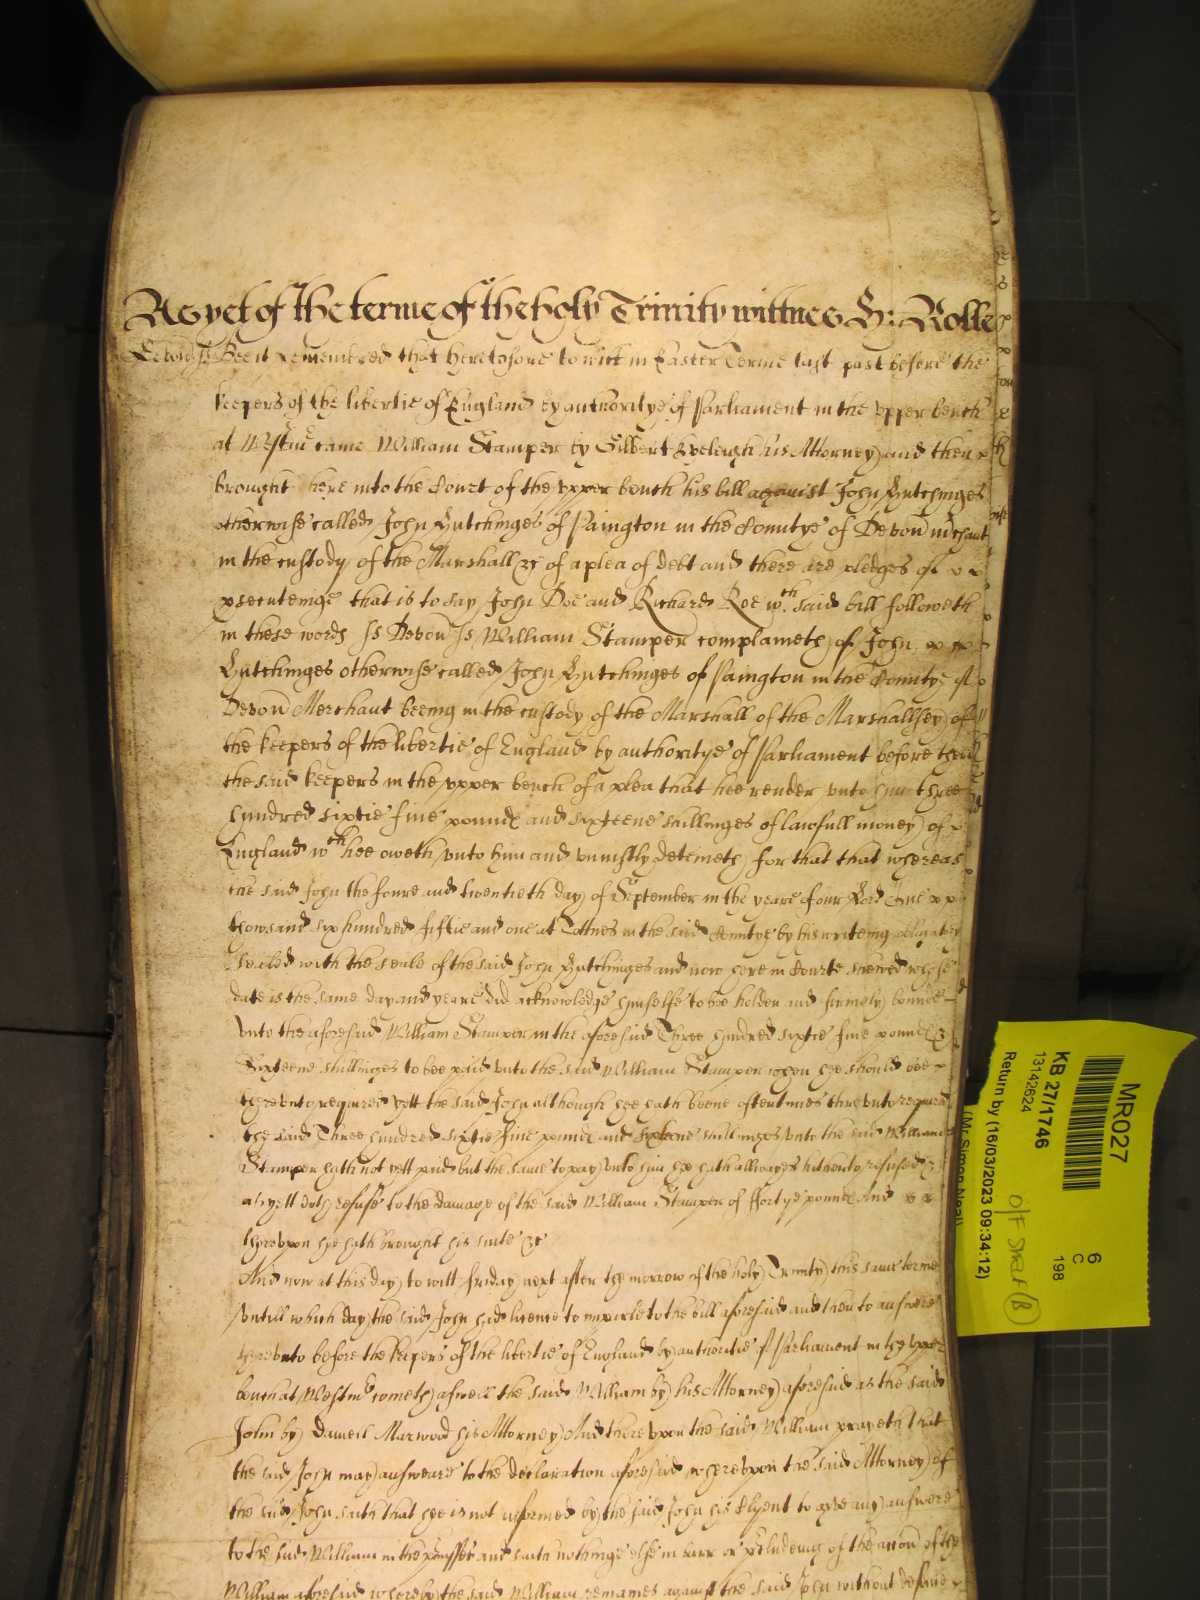 As yet of the terme of the holy Trinity wittnes H: Rolle
Devon ss Bee it remembred that heretofore to witt in Easter Terme last past before the
keepers of the libertie of England by authoritye of Parliament in the vpper bench
at Westm came William Stamper by Gilbert Eveleigh his Attorney and then
brought here into the Court of the vpper bench his bill against John Hutchinges
otherwise called John Hutchinges of Paington in the Countye of Devon mchant
in the custody of the Marshall &c of a plea of debt and there are pledges of
psecuteinge that is to say John Doe and Richard Roe wch said bill followeth
in these words ss Devon ss William Stamper complaineth of John
Hutchinges otherwise called John Hutchinges of Paington in the Countye of
Devon Merchant beeing in the custody of the Marshall of the Marshallsey of
the keepers of the libertie of England by authoritye of Parliament before
the said keepers in the vpper bench of a plea that hee render vnto him three
hundred sixtie five pounds and sixteene shillinges of lawfull money of
England wch hee oweth vnto him and vniustly deteineth for that that whereas
the said John the foure and twentieth day of September in the yeare of our Lord One
thowsand six hundred fiftie and one at Tottnes in the said Countye by his writeing obligatory
sealed with the seale of the said John Hutchinges and now here in Courte shewed whose
date is the same day and yeare did acknowledge himselfe to bee holden and firmely bounde
vnto the aforesaid William Stamper in the aforesaid Three hundred sixtie five pounds &
Sixteene shillinges to bee paid vnto the said William Stamper when he should bee
therevnto required yett the said John although hee hath beene oftentimes therevnto required
the said Three hundred sixtie five pounds and sixteene shillinges vnto the said William
Stamper hath not yett paid but the same to pay vnto him he hath allwayes hitherto refused &
as yett doth refuse to the damage of the said William Stamper of ffortye pounds And
therevpon he hath brought his suite &c
And now at this day to witt friday next after the morrow of the holy Trinity this same terme
vntill which day the said John had licence to imparle to the bill aforesaid and then to answere
therevnto before the keepers of the libertie of England by authoritie of Parliament in the vpper
bench at Westm cometh aswell the said William by his Attorney aforesaid as the said
John by Daniell Marwood his Attorney And therevpon the said William prayeth that
the said John may answeare to the declaration aforesaid wherevpon the said Attorney of
the said John saith that hee is not informed by the said John his Clyent to give any answere
to the said William in the premisses and saith nothinge else in barr or pcludeing of the accon of the
William aforesaid whereby the said William remaines against the said John without defence
MR027
KB 27/1746
13142624
Return by (16/03/2023 09:34:12)
(Mr Simon Neal)
6
C
198
O/F Street B